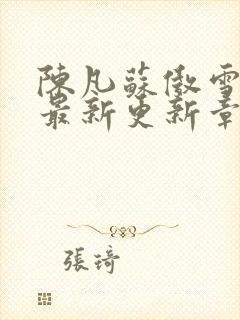 陳凡蘇傲雪
最新更新章
張琦